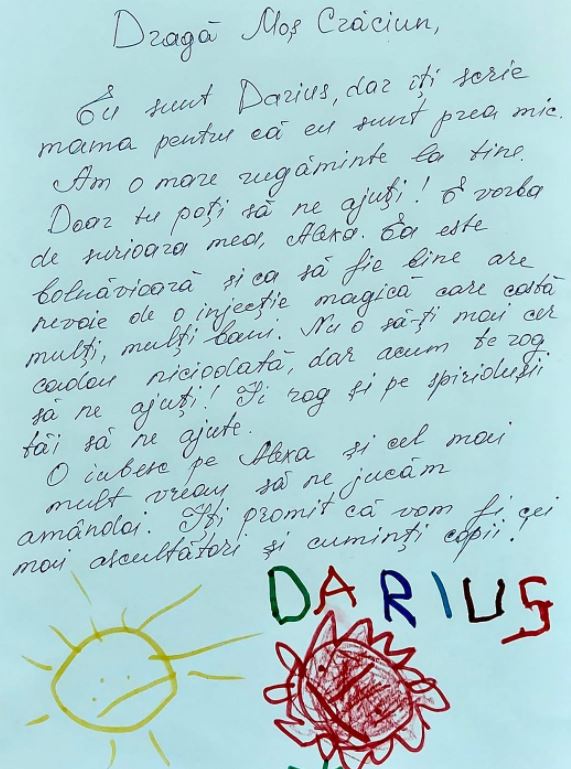 Dragă Moș Crăciun,
Eu sunt Darius, dar îți scrie
mama pentru că eu sunt prea mic.
Am o mare rugăminte la tine.
Doar tu poți să ne ajuți! E vorba
de surioara mea, Alexa. Ea este
bolnăvioară și ca să fie bine are
nevoie de o injecție magică care costă
mulți, mulți bani. Nu o să-ți mai cer
cadou niciodată, dar acum te rog
să ne ajuți! Îi rog și pe spiridușii
tăi să ne ajute.
O iubesc pe Alexa și cel mai
mult vreau să ne jucăm
amândoi. Îți promit că vom fi cei
mai ascultători și cuminți copii!
DARIUS